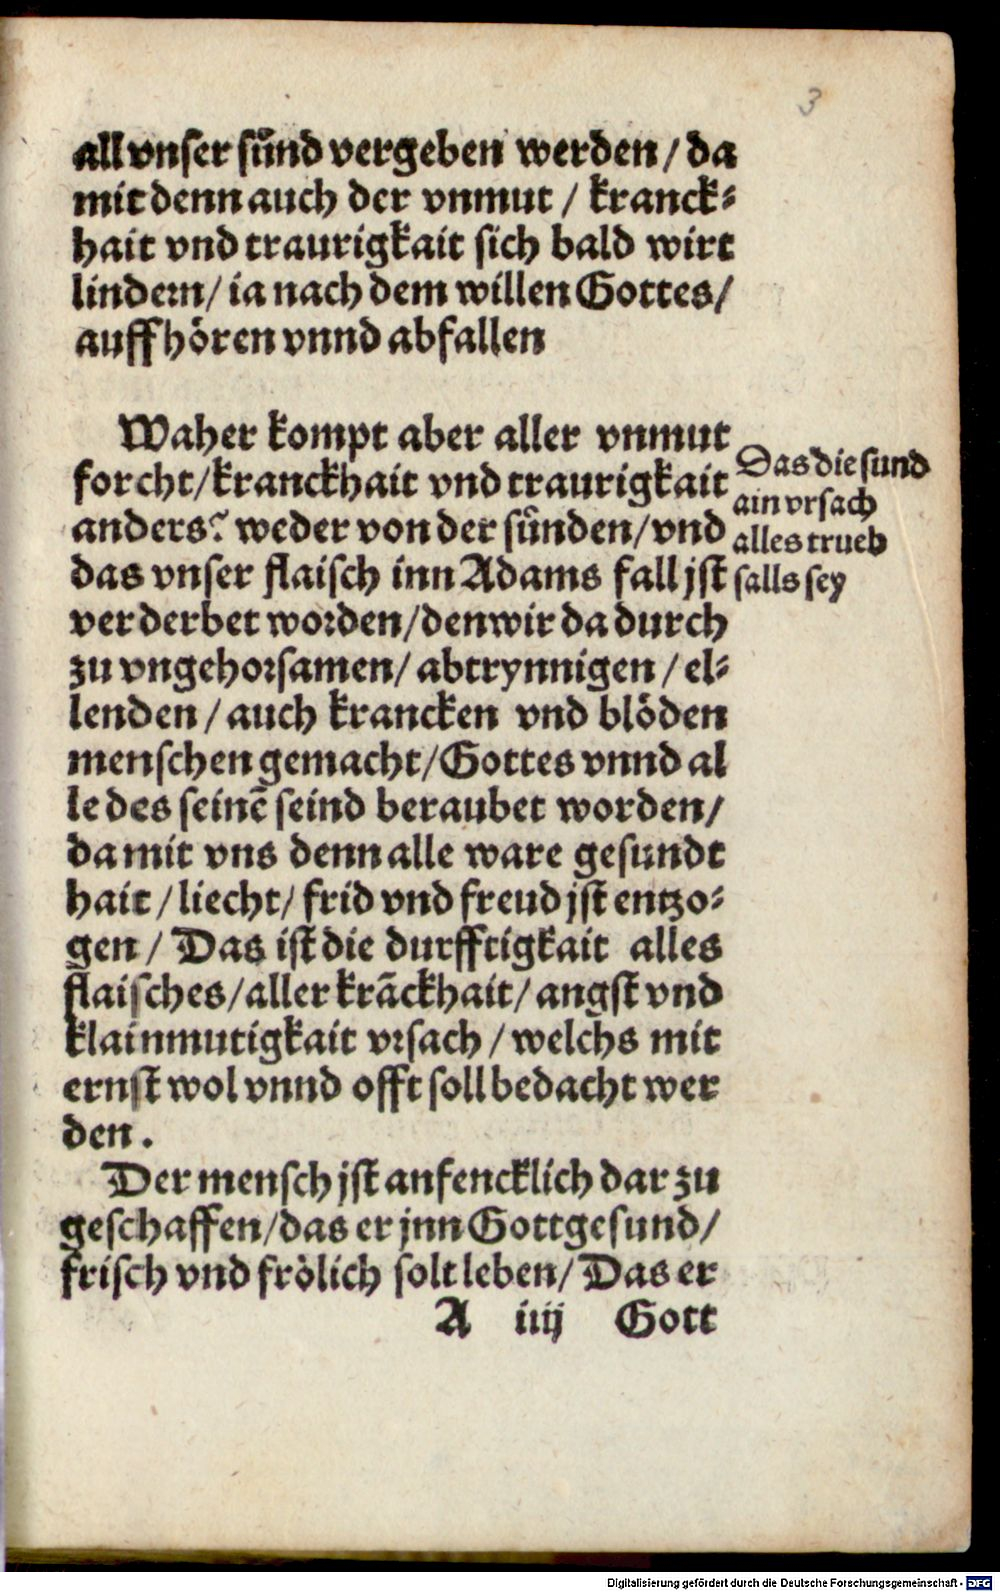 3
all vnser sünd vergeben werden / da
mit denn auch der vnmut / kranck⸗
hait vnd traurigkait sich bald wirt
lindern / ia nach dem willen Gottes /
auffhören vnnd abfallen
Waher kompt aber aller vnmut
forcht / kranckhait vnd traurigkait
anders? weder von der sünden / vnd
das vnser flaisch inn Adams fall jst
verderbet worden / den wir dadurch
zu vngehorsamen / abtrynnigen / el⸗
lenden / auch krancken vnd blöden
menschen gemacht / Gottes vnnd al
le des seinē seind beraubet worden /
damit vns denn alle ware gesundt
hait / liecht / frid vnd freud jst entzo⸗
gen / Das ist die durfftigkait alles
flaisches / aller krāckhait / angst vnd
klainmutigkait vrsach / welchs mit
ernst wol vnnd offt soll bedacht wer
den.
Der mensch jst anfencklich dar zu
geschaffen / das er jnn Gott gesund /
frisch vnd frölich solt leben / Das er
A iiij Gott
Das die sund
ain vrsach
alles trueb
salls sey
Digitalisierung gefördert durch die Deutsche Forschungsgemeinschaft - DFG